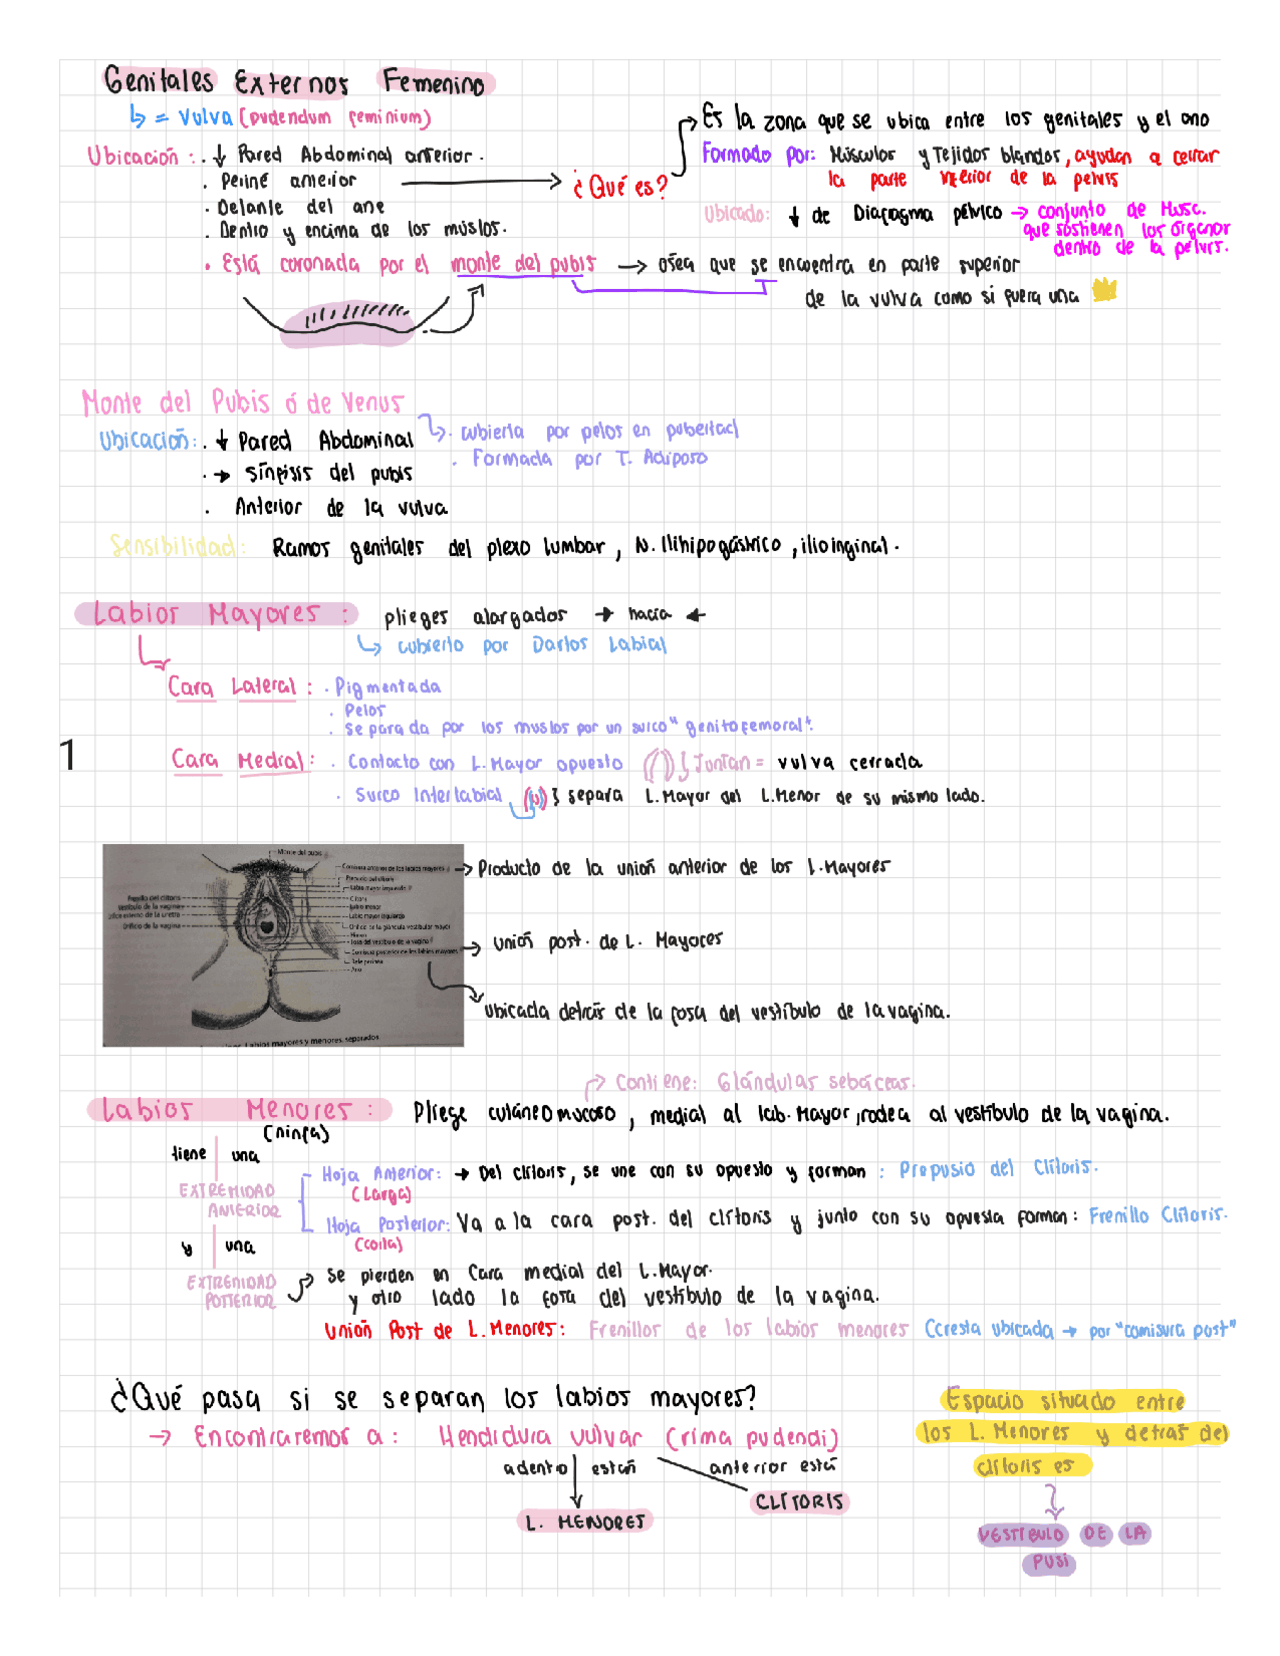 Genitales Externos Femenino
↳ = Vulva (pudendum feminium)
Ubicación: . ↓ Pared Abdominal anterior.
. Periné anterior → ¿Qué es?
. Delante del ane
. Dentro y encima de los muslos.
. Está coronada por el monte del pubis → osea que se encuentra en parte superior
de la vulva como si fuera una
Es la zona que se ubica entre los genitales y el ano
Formado por: Músculos y Tejidos blandos, ayudan a cerrar
la parte inferior de la pelvis
Ubicado: ↓ de Diafragma pélvico → conjunto de Musc.
que sostienen los órganos
dentro de la pelvis.
Monte del Pubis ó de Venus
↳ . cubierta por pelos en pubertad
. Formada por T. Adiposo
Ubicación: . ↓ Pared Abdominal
. → Sínfisis del pubis
. Anterior de la vulva
Sensibilidad: Ramos genitales del plexo lumbar, N. Ilihipogástrico, ilioinginal.
Labios Mayores: plieges alargados → hacia ←
↳ cubierto por Dartos Labial
Cara Lateral: . Pigmentada
. Pelos
. Separada por los muslos por un surco "genitofemoral".
1
Cara Medial: . Contacto con L. Mayor opuesto } Juntan = vulva cerrada
. Surco Interlabial } separa L. Mayor del L. Menor de su mismo lado.
Monte del pubis
Clítoris
Labio menor
Labio mayor izquierdo
Orificio de la glándula vestibular mayor
Himen
Fosa del vestíbulo de la vagina
Comisura posterior de los labios mayores
Ano
Orificio de la vagina
Labios mayores y menores, separados
→ Producto de la unión anterior de los L. Mayores
→ Unión post. de L. Mayores
Ubicada detrás de la fosa del vestíbulo de la vagina.
→ Contiene: Glándulas sebáceas.
Labios Menores: Pliege cutáneo mucoso, medial al lab. Mayor, rodea al vestíbulo de la vagina.
(ninfa)
tiene una
EXTREMIDAD
ANTERIOR
Hoja Anterior: → Del clítoris, se une con su opuesto y forman: Prepusio del Clítoris.
(Larga)
Hoja Posterior: Va a la cara post. del clítoris y junto con su opuesta forman: Frenillo Clítoris.
(corta)
y una
EXTREMIDAD
POSTERIOR
→ Se pierden en Cara medial del L. Mayor.
y otro lado la fosa del vestíbulo de la vagina.
Unión Post de L. Menores: Frenillor de los labios menores (cresta ubicada → por "comisura post"
¿Qué pasa si se separan los labios mayores?
→ Encontraremos a: Hendidura vulvar (rima pudendi)
adentro están
anterior está
L. MENORES
CLÍTORIS
Espacio situado entre
los L. Menores y detrás del
clítoris es
VESTIBULO DE LA
PUSI